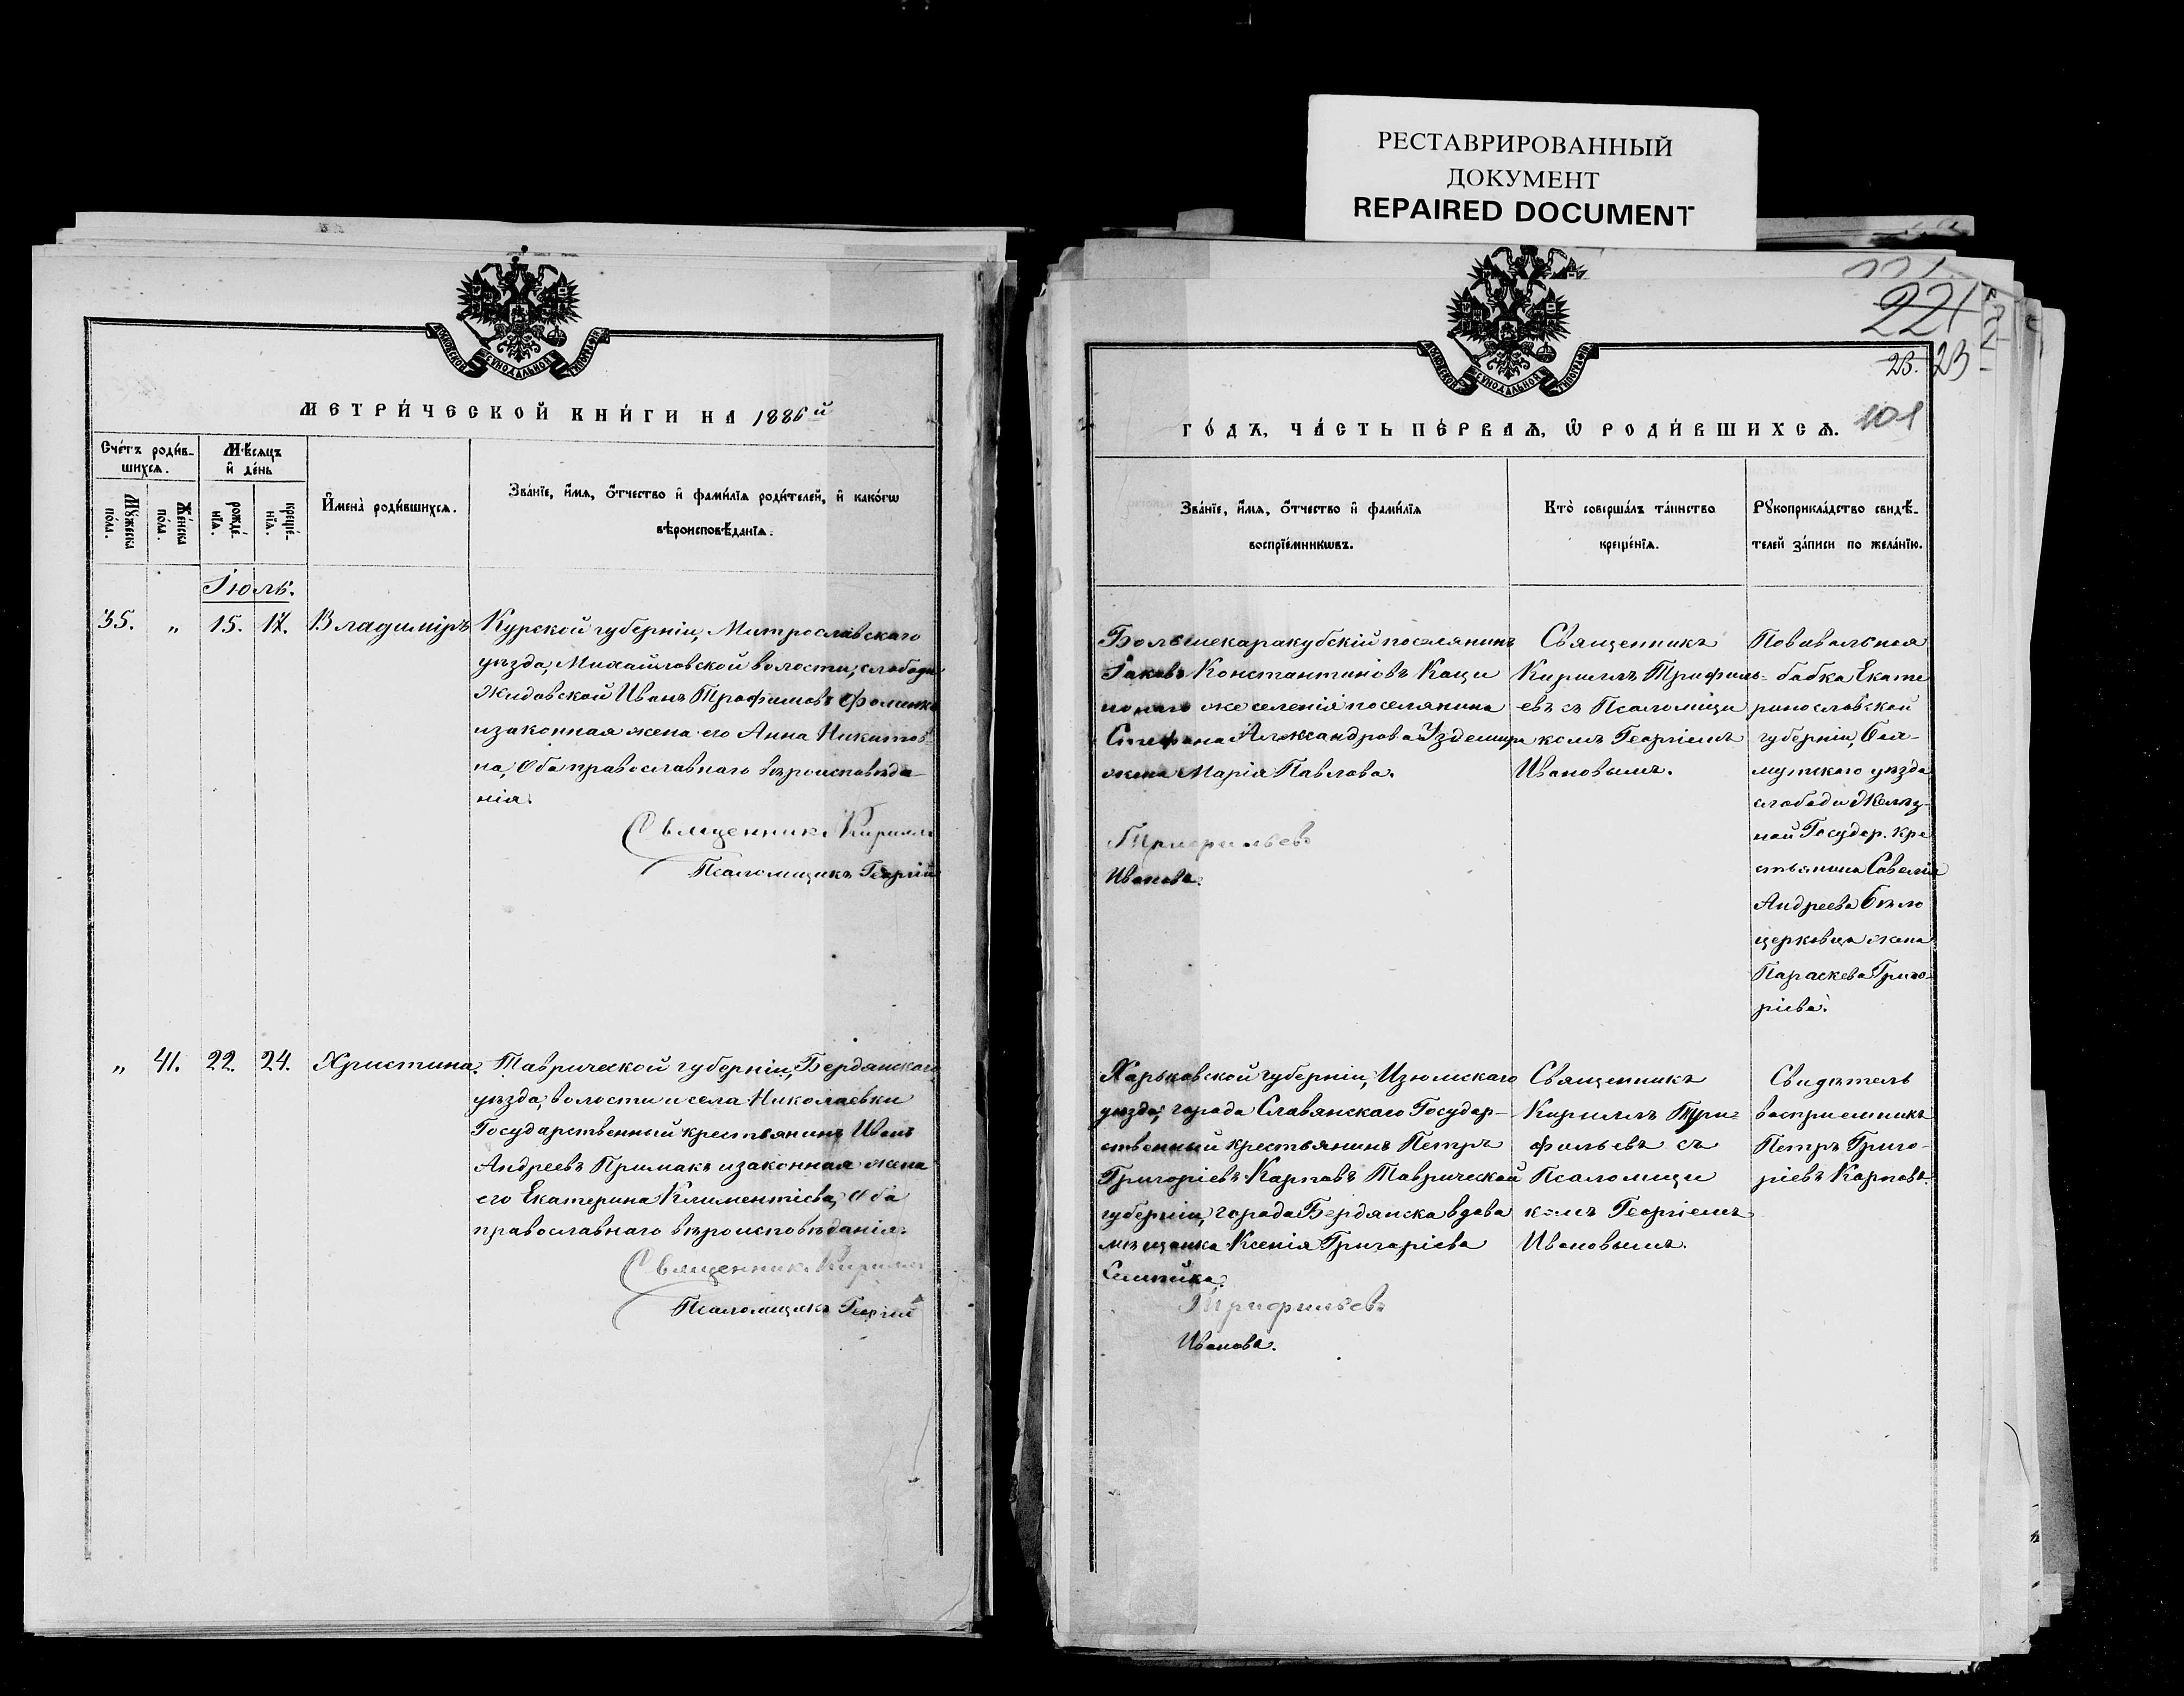 РЕСТАВРИРОВАННЫЙ
ДОКУМЕНТ
REPAIRED DOCUMENT
МОСКОВСКОЙ СѴНОДАЛЬНОЙ ТИПОГРАФІИ
МЕТРИ́ЧЕСКОЙ КНИ́ГИ НА 1886й
Сче́тъ роди́в-
шихсѧ.
Мѣ́сѧцъ
и҆ де́нь
Мꙋ́жеска
по́ла.
Же́нска
по́ла.
рожде́-
нїѧ.
креще́-
нїѧ.
И҆мена̀ роди́вшихсѧ.
Зва́нїе, и҆́мѧ, ѻ҆́тчество и҆ фами́лїѧ роди́телей, и҆ како́гѡ
вѣроисповѣ́данїѧ.
Іюль.
35. „ 15. 17. Владиміръ
Курской губерніи, Митрославскаго
уѣзда, Михайловской волости, слободы
Жидовской Иванъ Трофимовъ Фоменко
и законная жена его Анна Никитов-
на, Оба православнаго вѣроисповѣда-
нія.
Священникъ Кириллъ
Псаломщикъ Георгій
„ 41. 22. 24. Христина.
Таврической губерніи, Бердянскаго
уѣзда, волости и села Николаевки
Государственный крестьянинъ Иванъ
Андреевъ Примакъ и законная жена
его Екатерина Климентіева, Оба
православнаго вѣроисповѣданія.
Священникъ Кириллъ
Псаломщикъ Георгій
221
23. 23
101
МОСКОВСКОЙ СѴНОДАЛЬНОЙ ТИПОГРАФІИ
ГО́ДЪ, ЧА́СТЬ ПЕ́РВАѦ, Ѡ҆ РОДИ́ВШИХСѦ.
Зва́нїе, и҆́мѧ, ѻ҆́тчество и҆ фами́лїѧ
воспрїе́мникѡвъ.
Кто̀ соверша́лъ та́инство
креще́нїѧ.
Рꙋкоприкла́дство свидѣ́-
телей за́писи по жела́нїю.
Большекаракубскій поселянинъ
Іаковъ Константиновъ Каци
и онаго же селенія поселянина
Стефана Александрова Уздемира
жена Марія Павлова.
Трифильевъ
Ивановъ.
Священникъ
Кириллъ Трифиль-
евъ съ Псаломщи
комъ Георгіемъ
Ивановымъ.
Повивальная
бабка Екате
ринославской
губерніи, Бах-
мутскаго уѣзда
слободы Желѣз-
ной Государ. кре
стьянина Савелія
Андреева Бѣло
церковца жена
Параскева Григо-
ріева.
Харьковской губерніи, Изюмскаго
уѣзда, города Славянскаго Государ-
ственный крестьянинъ Петръ
Григоріевъ Карповъ Таврической
губерніи, города Бердянска вдова
мѣщанка Ксенія Григоріева
Трифильевъ
Ивановъ.
Священникъ
Кириллъ Три-
фильевъ съ
Псаломщи
комъ Георгіемъ
Ивановымъ.
Свидѣтель
воспріемникъ
Петръ Григо-
ріевъ Карповъ.